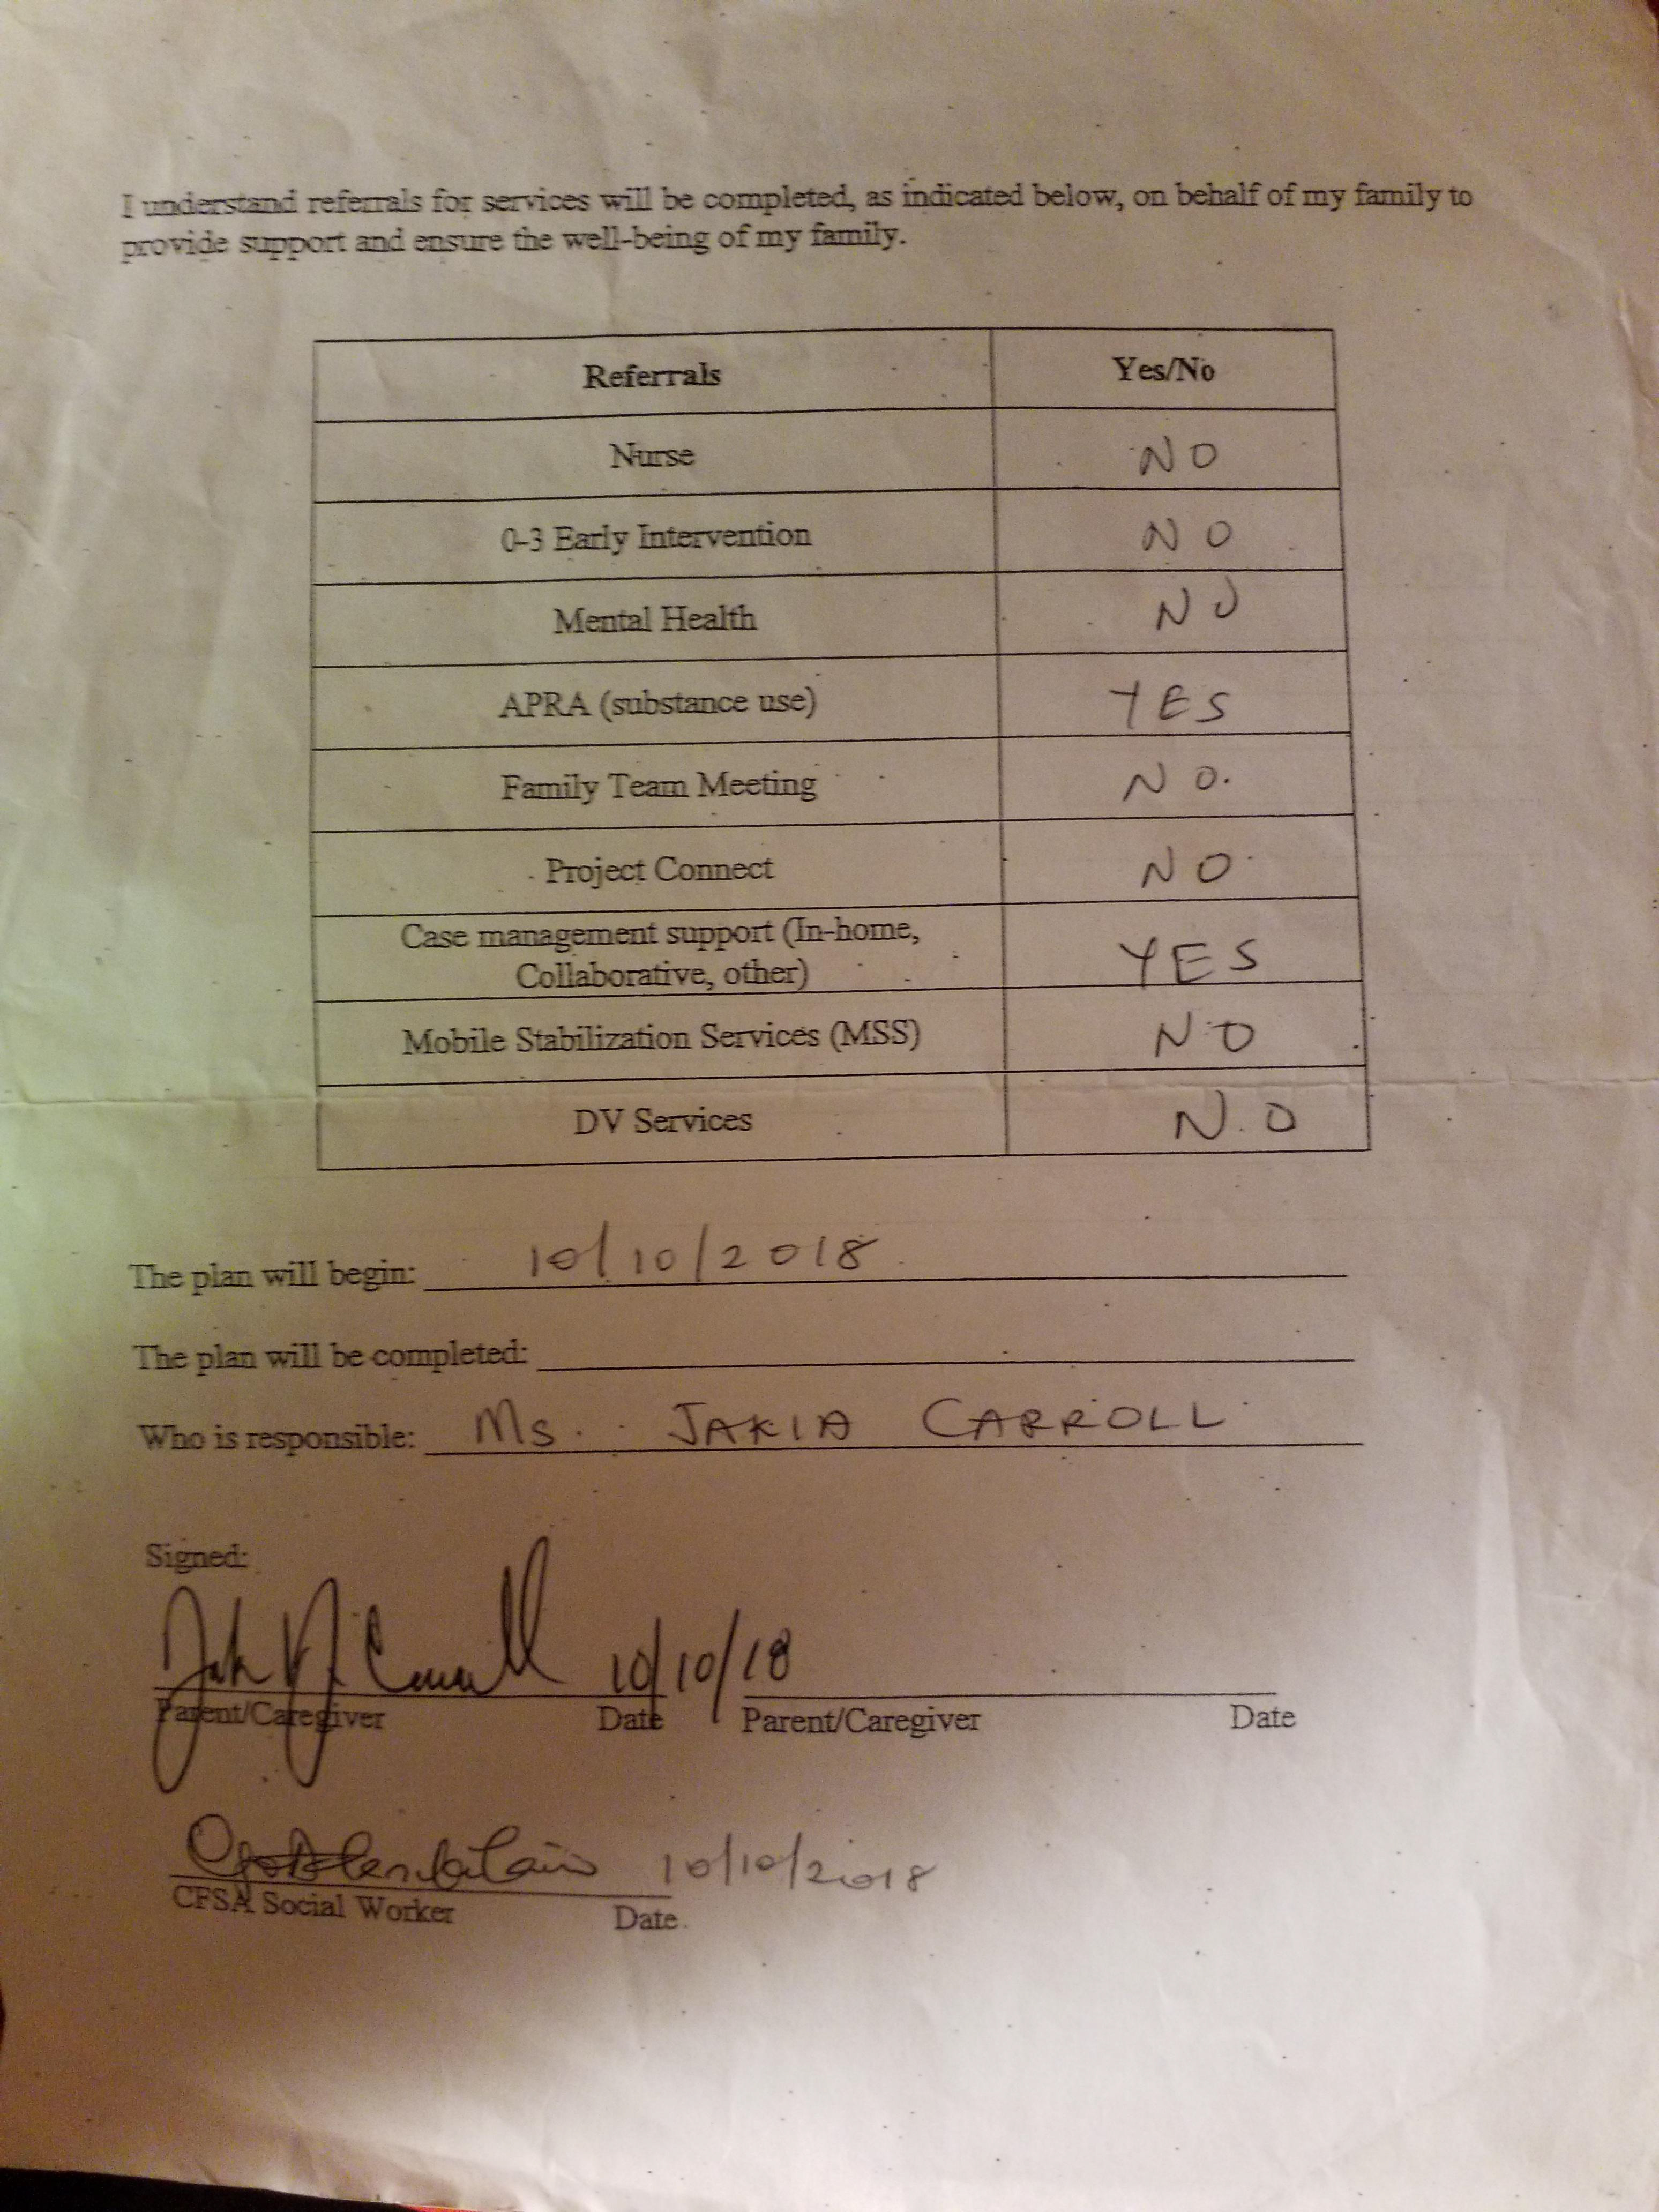 I understand referrals for services will be completed, as indicated below, on behalf of my family to
provide support and ensure the well-being of my family.
Referrals Yes/No
Nurse NO
0-3 Early Intervention NO
Mental Health NO
APRA (substance use) YES
Family Team Meeting NO.
Project Connect NO
Case management support (In-home,
Collaborative, other) YES
Mobile Stabilization Services (MSS) NO
DV Services N.O
The plan will begin: 10/10/2018
The plan will be completed:
Who is responsible: Ms. JAKIA CARROLL
Signed:
10/10/18
Parent/Caregiver Date Parent/Caregiver Date
10/10/2018
CFSA Social Worker Date